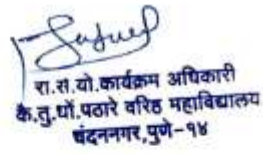 रा.से.यो.कार्यक्रम अधिकारी
के.तु.धों.पठारे वरिष्ठ महाविद्यालय
चंदननगर,पुणे-१४